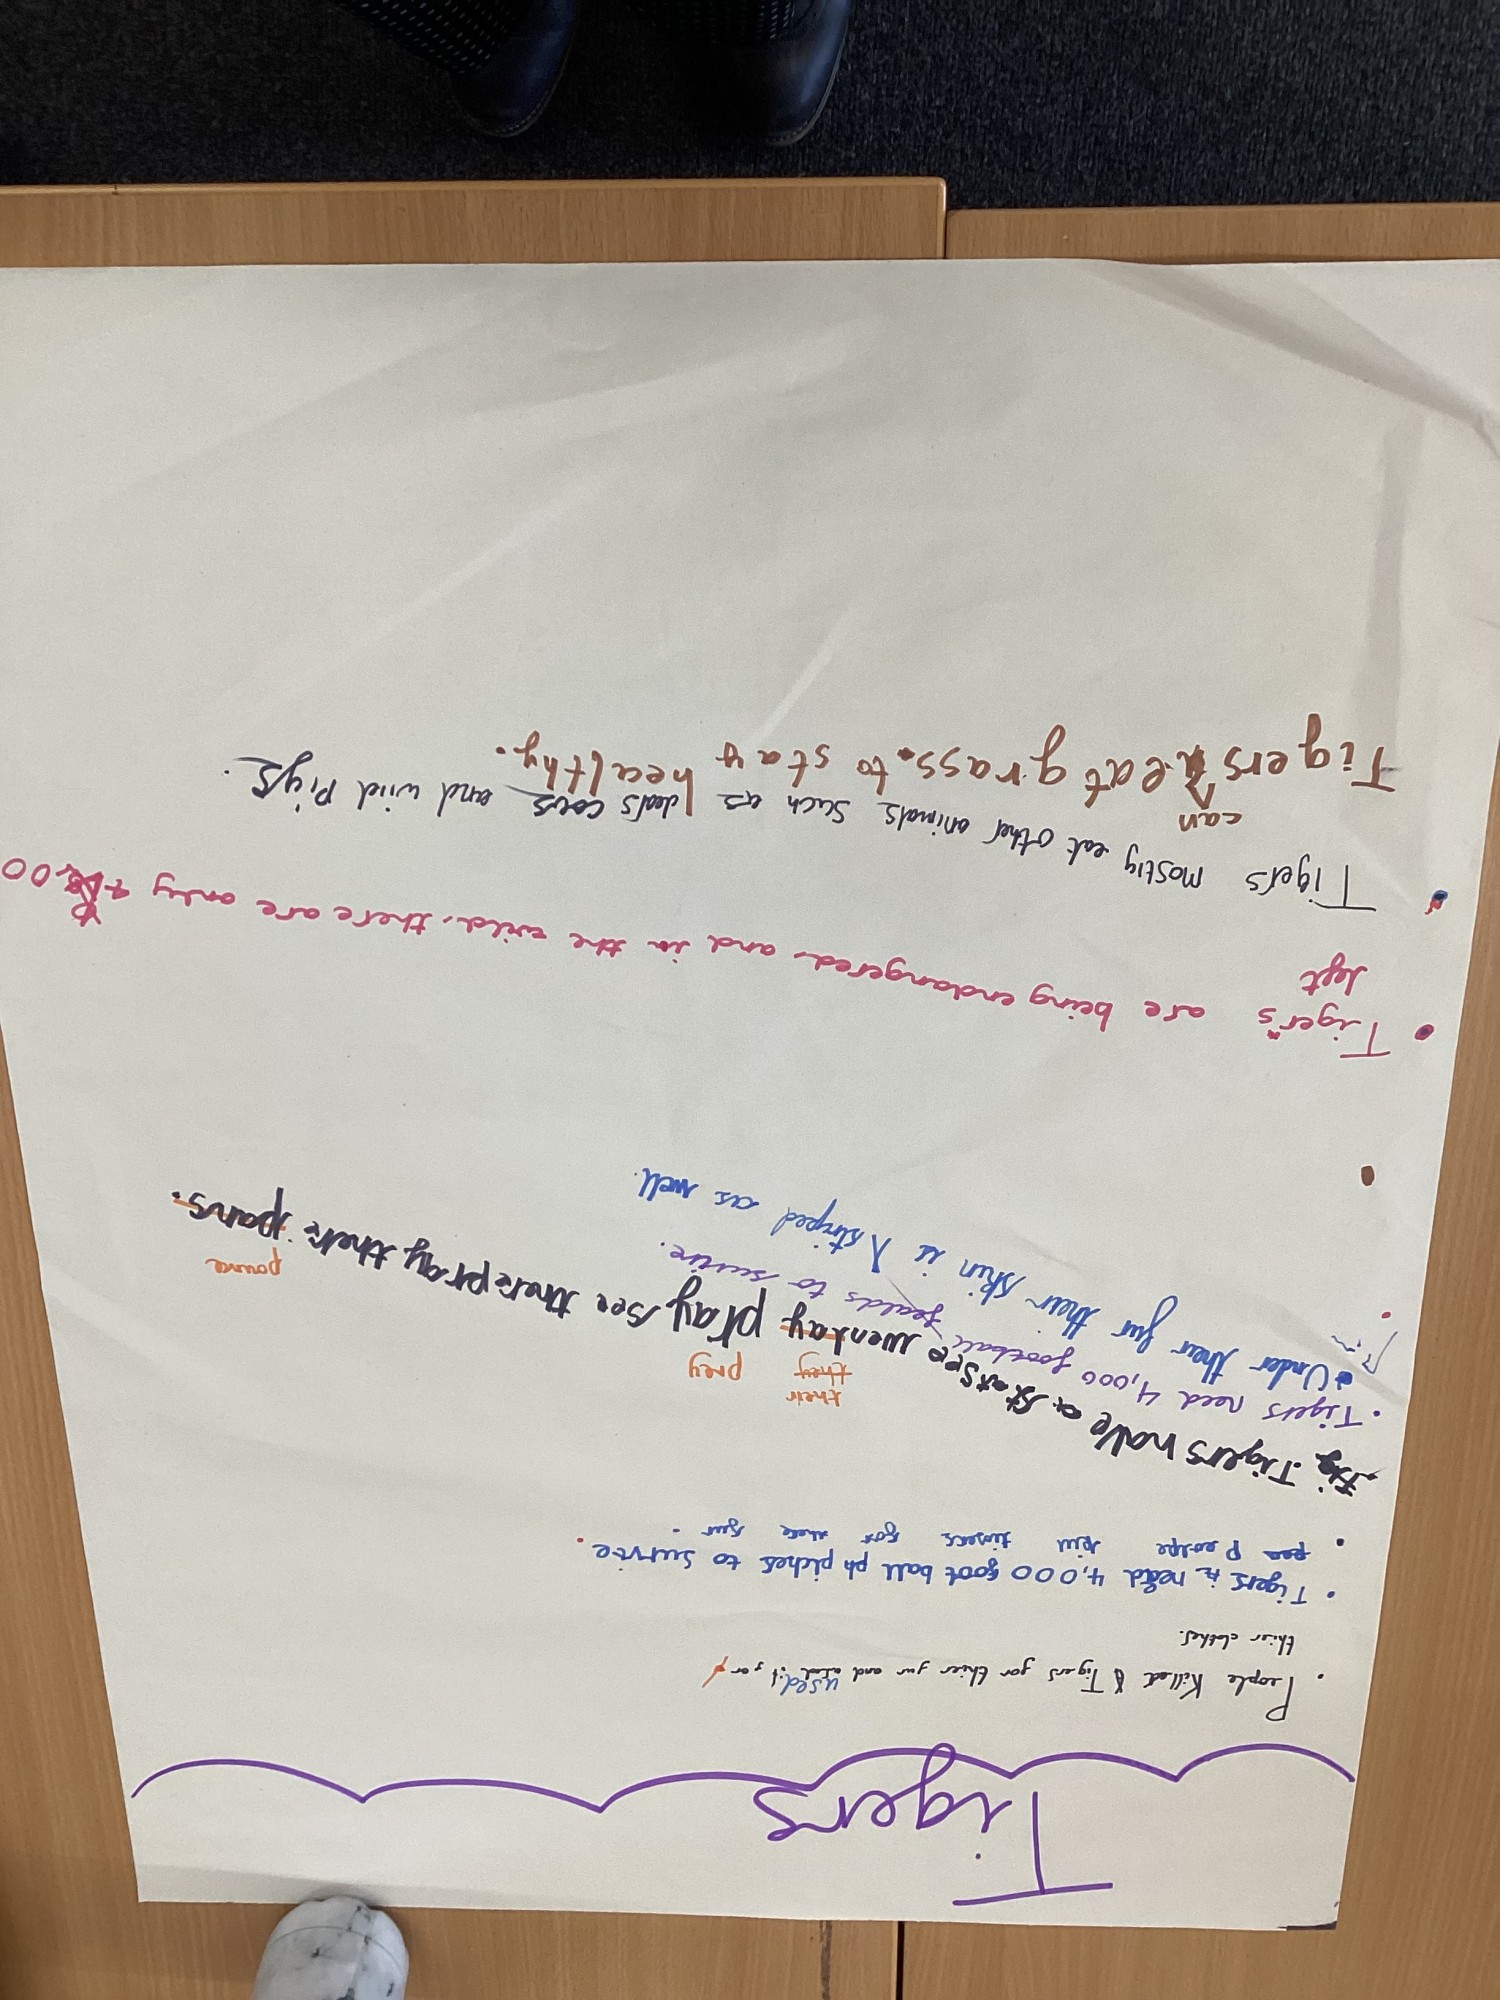 Tigers
• People Killed Tigers for thier fur and used it for
thier clothes.
• Tigers need 4,000 foot ball ph piches to survive.
• Peolpe kill tigers for there fur.
Tigers have a see
their
they
prey
play see there pray there paws.
pawse
• Tigers need 4,000 football feailds to survive.
• Under their fur their skin is striped as well.
• Tiger's are being endangered and in the wild, there are only
left
• Tigers mostly eat other animals such as deers cows and wild Pigs.
can
Tigers eat grass to stay healthy.